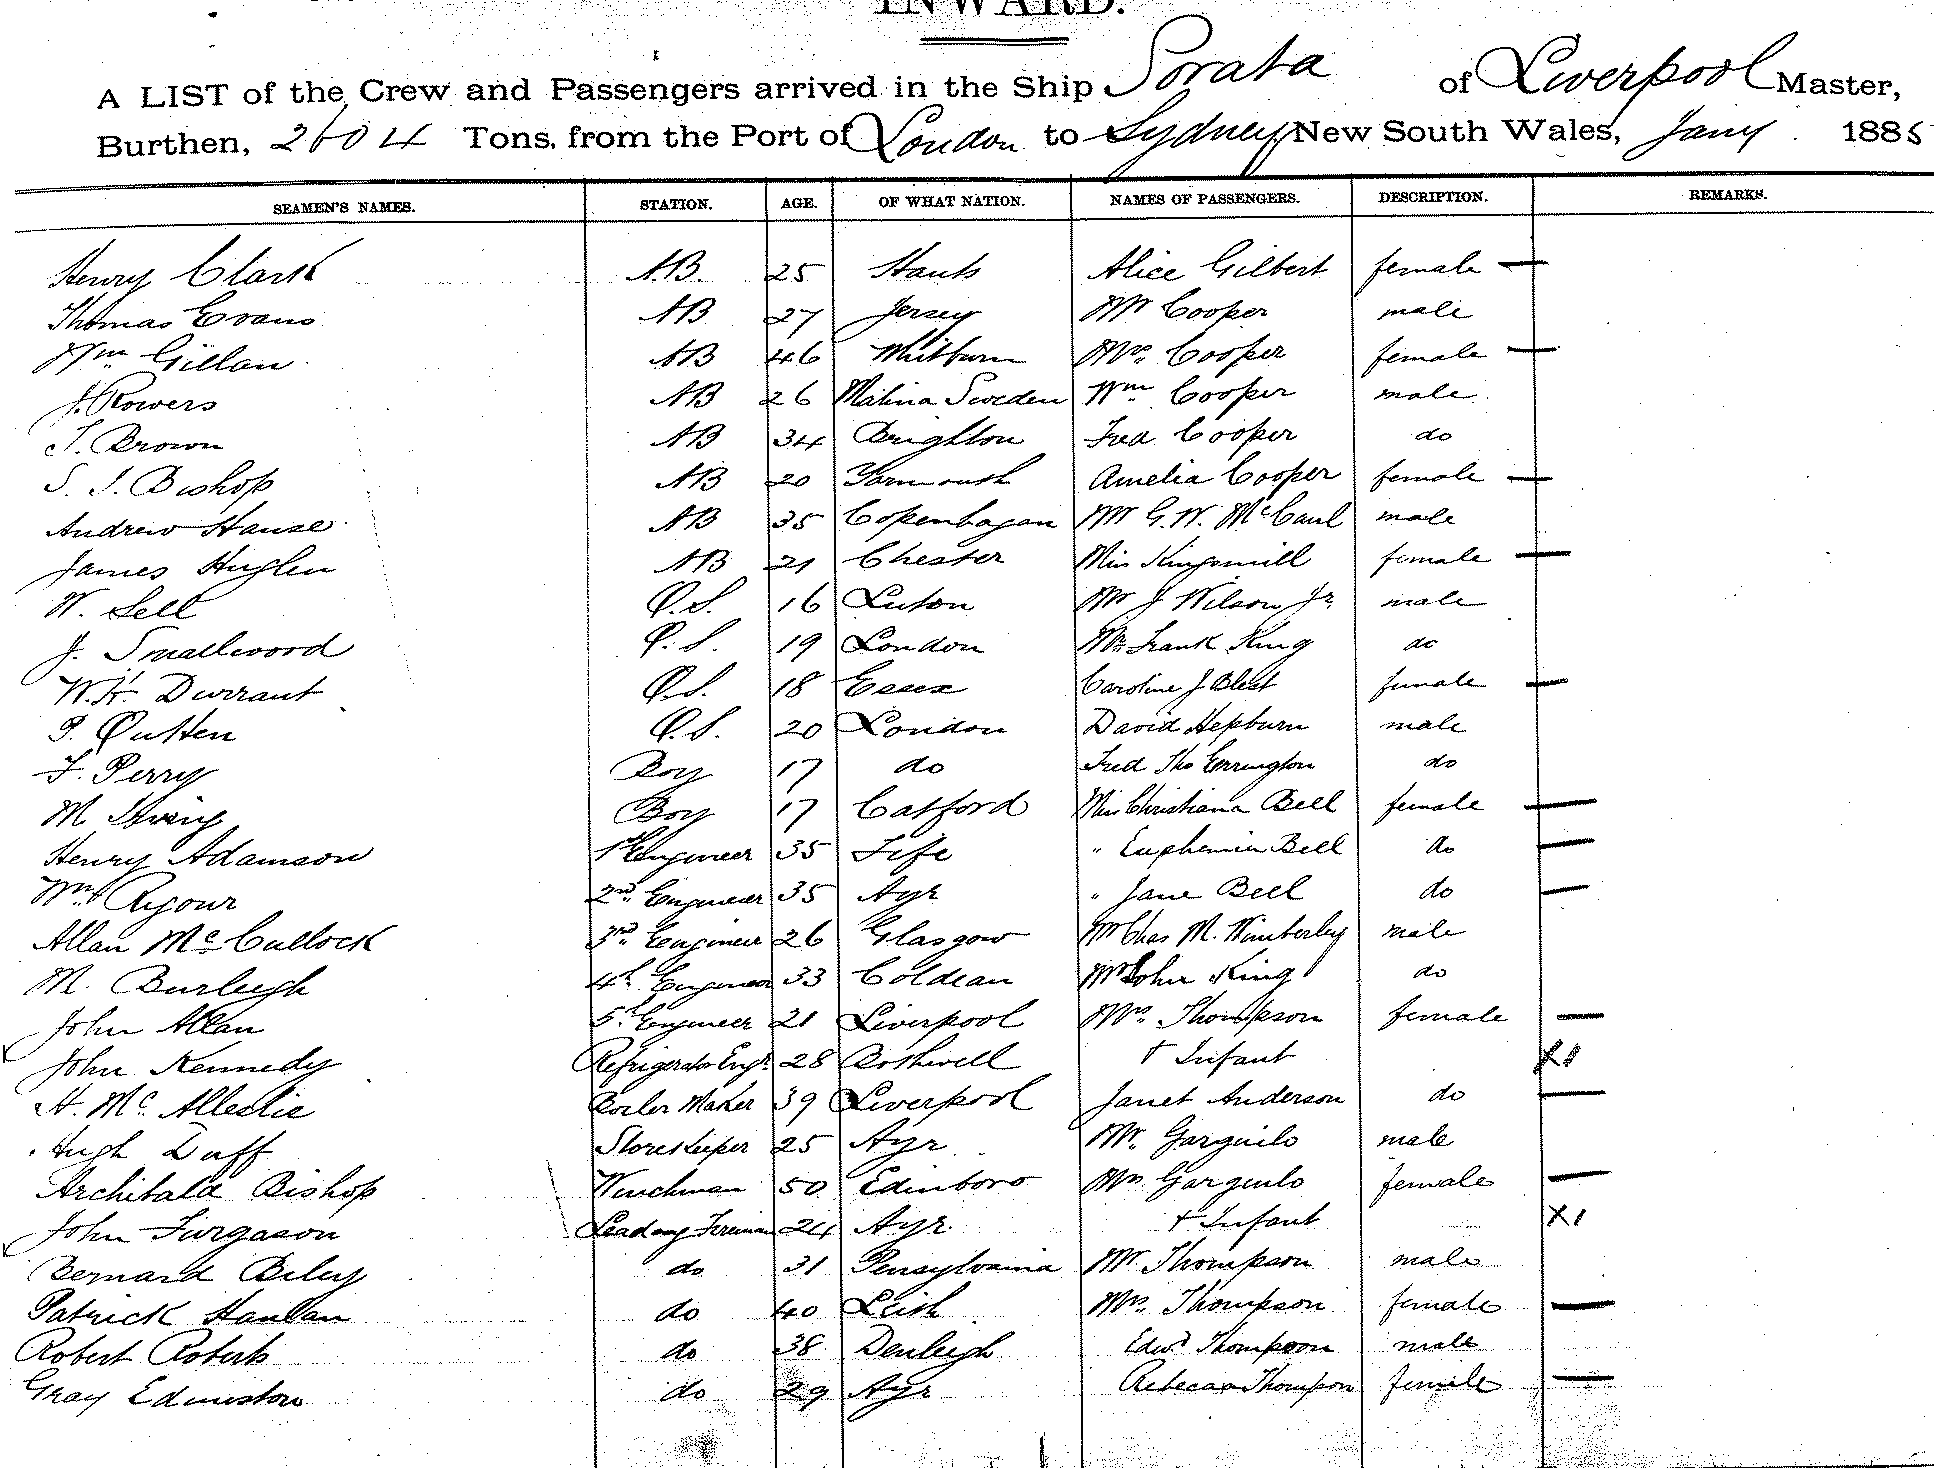 INWARD.
A LIST of the Crew and Passengers arrived in the Ship Sorata of Liverpool Master,
Burthen, 2604 Tons, from the Port of London to Sydney New South Wales, Jany 1885
SEAMEN'S NAMES. STATION. AGE. OF WHAT NATION. NAMES OF PASSENGERS. DESCRIPTION. REMARKS.
Henry Clark AB. 25 Hants Alice Gilbert female —
Thomas Evans AB 27 Jersey Mr Cooper male
Wm Gillan AB 46 Whitburn Mrs. Cooper female —
J. Rowers AB 26 Malina Sweden Wm Cooper male
T. Brown AB 34 Brighton Fred Cooper do
S. J. Bishop AB 20 Yarmouth Amelia Cooper female —
Andrew Hanse AB 35 Copenhagan Mr G. W. McCaul male
James Huglen AB 21 Chester Miss Kingsmill female —
W. Sell O.S. 16 Luton Mr J Wilson Jr. male
J. Smallwood O.S. 19 London Mr. Frank King do
W. H. Durrant O.S. 18 Essex Caroline J Blest female —
P. Outten O.S. 20 London David Hepburn male
F. Perry Boy 17 do Fred Tho Errington do
M Boy 17 Catford Miss Christiana Bell female —
Henry Adamson 1st Engineer 35 Fife " Euphemia Bell do —
Wm. Ryour 2nd. Engineer 35 Ayr " Jane Bell do —
Allan McCullock 3rd. Engineer 26 Glasgow Mr Chas M. Wimberley male
M. Burleigh 4th Engineer 33 Coldean Mr John King do
John Allan 5th Engineer 21 Liverpool Mrs. Thompson female —
John Kennedy Refrigerator Engr. 28 Bothwell + Infant X1
H. Mc. Allestie Boiler Maker 39 Liverpool Janet Anderson do —
Hugh Duff Storekeeper 25 Ayr Mr. Garguilo male
Archibald Bishop Winchman 50 Edinboro Mrs Garguilo female —
John Furgason Leading Fireman 24 Ayr. + Infant X1
Bernard Biley do 31 Pensylvania Mr. Thompson male
Patrick Hanlan do 40 Leith Mrs. Thompson female —
Robert Roberts do 38 Denleigh Edwd Thompson male
Gray Edmiston do 29 Ayr Rebecca Thompson female —